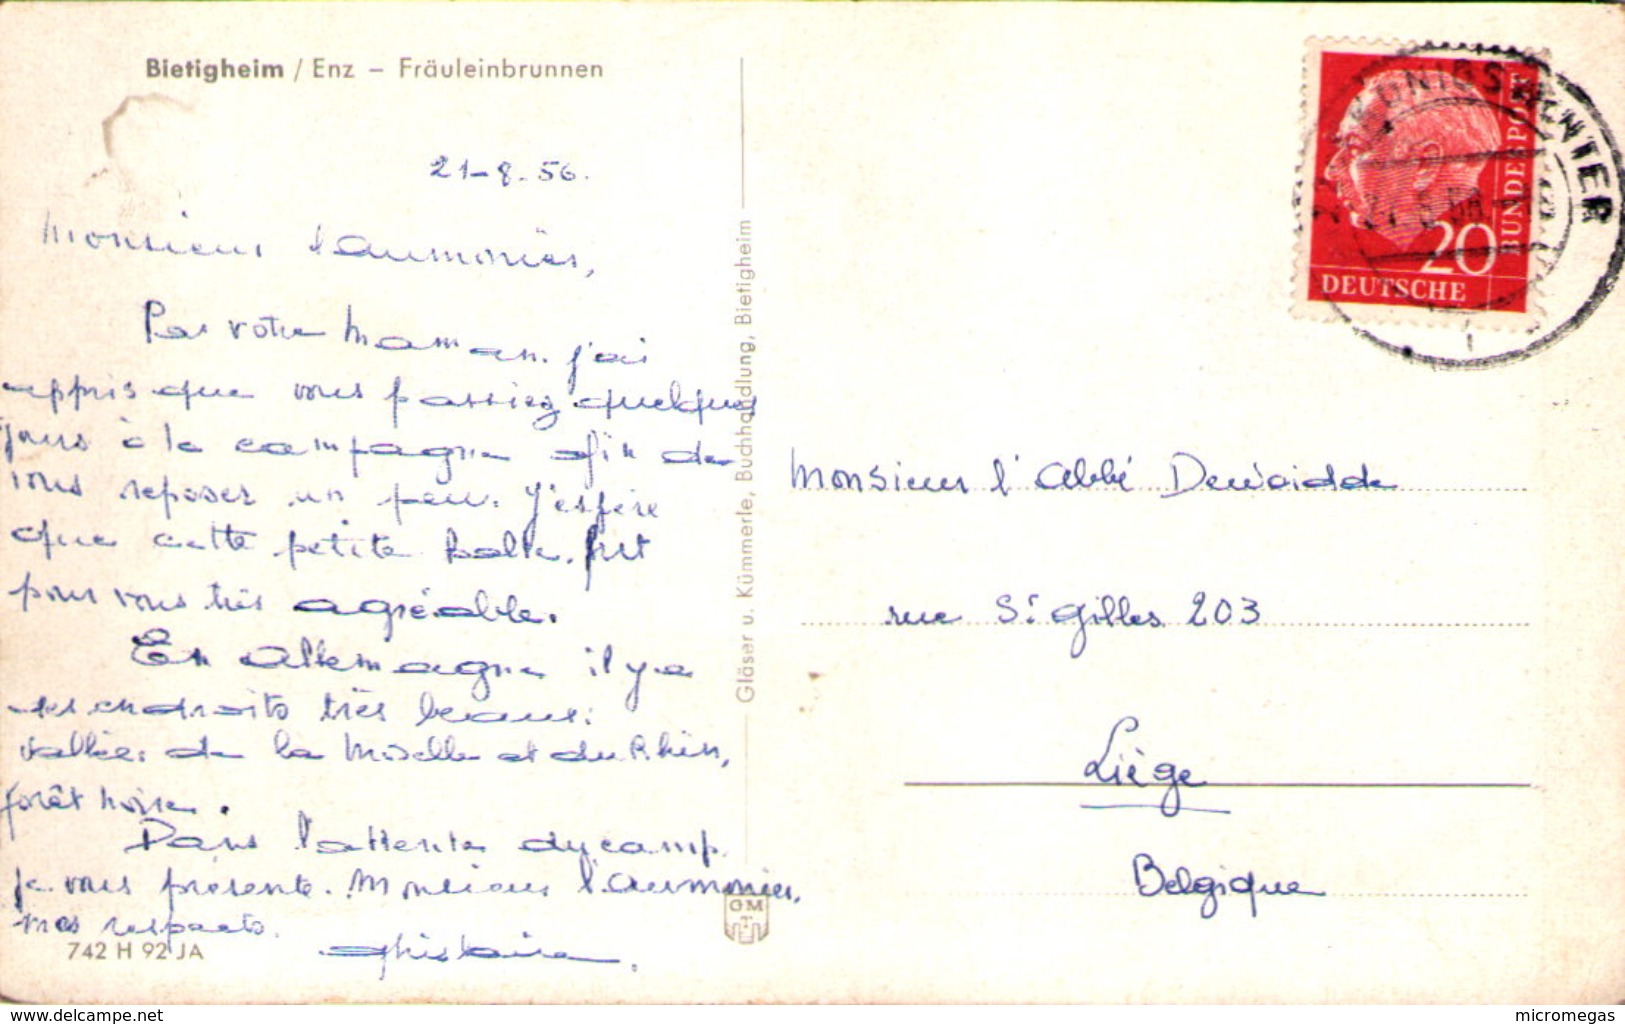 Bietigheim / Enz – Fräuleinbrunnen
21-8-56.
Monsieur l'aumonier,
Par votre Maman j'ai
appris que vous passiez quelques
jours à la campagne afin de
vous reposer un peu. J'espère
que cette petite halte fut
pour vous très agréable.
En Allemagne il y a
des endroits très beaux:
vallées de la Moselle et du Rhin,
forêt noire.
Dans l'attente du camp
je vous présente, Monsieur l'Aumonier,
mes respects.
Ghislaine.
742 H 92 JA
Gläser u. Kümmerle, Buchhandlung, Bietigheim
GM
KÖNIGSWINTER
20
DEUTSCHE
BUNDESPOST
Monsieur l'Abbé Dewaidde
rue St Gilles 203
Liège
Belgique
www.delcampe.net
micromegas